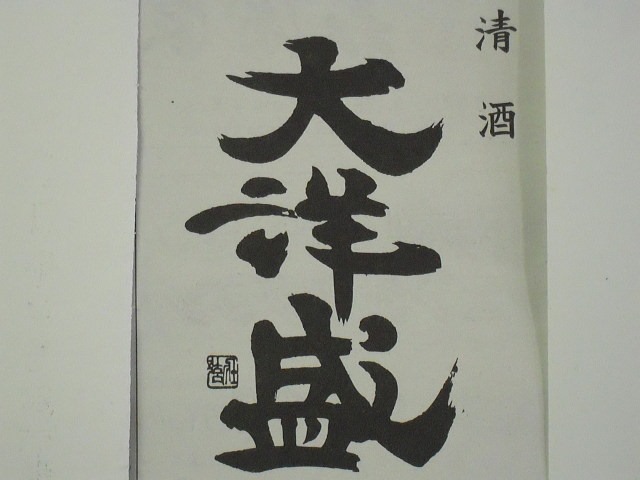 清酒
大洋盛